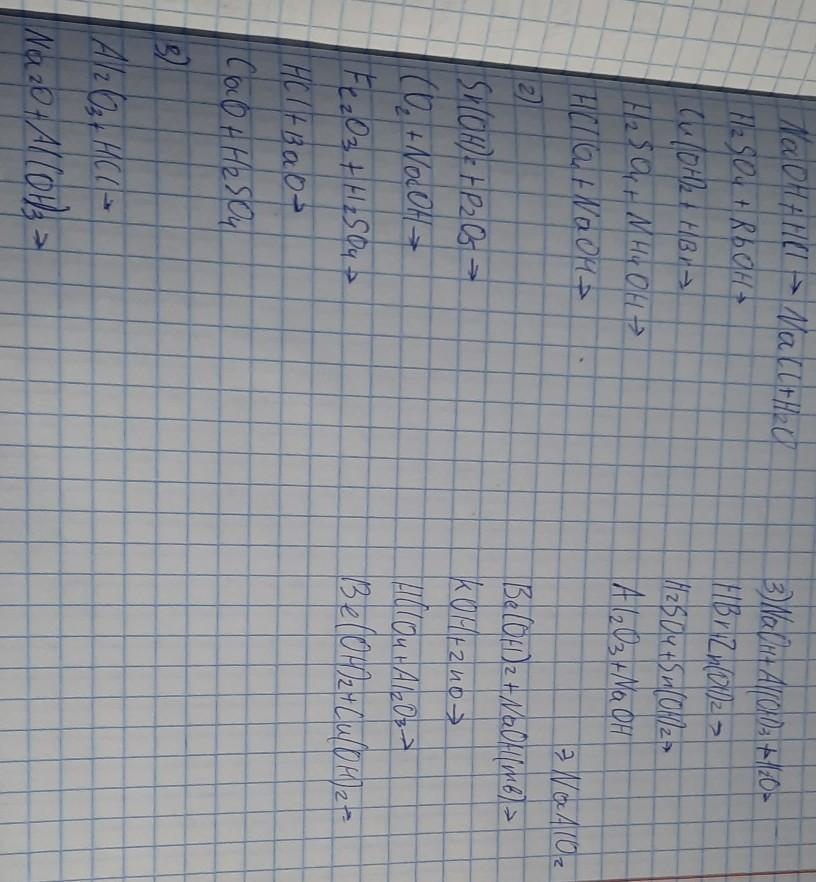 NaOH + HCl → NaCl + H2O
H2SO4 + RbOH →
Cu(OH)2 + HBr →
H2SO4 + NH4OH →
HClO4 + NaOH →
2)
Sr(OH)2 + P2O5 →
CO2 + NaOH →
Fe2O3 + H2SO4 →
HCl + BaO →
CaO + H2SO4
3)
Al2O3 + HCl →
Na2O + Al(OH)3 →
3) NaOH + Al(OH)3 + H2O →
HBr + Zn(OH)2 →
H2SO4 + Sn(OH)2 →
Al2O3 + NaOH
→ NaAlO2
Be(OH)2 + NaOH (тв) →
KOH + ZnO →
HClO4 + Al2O3 →
Be(OH)2 + Cu(OH)2 →